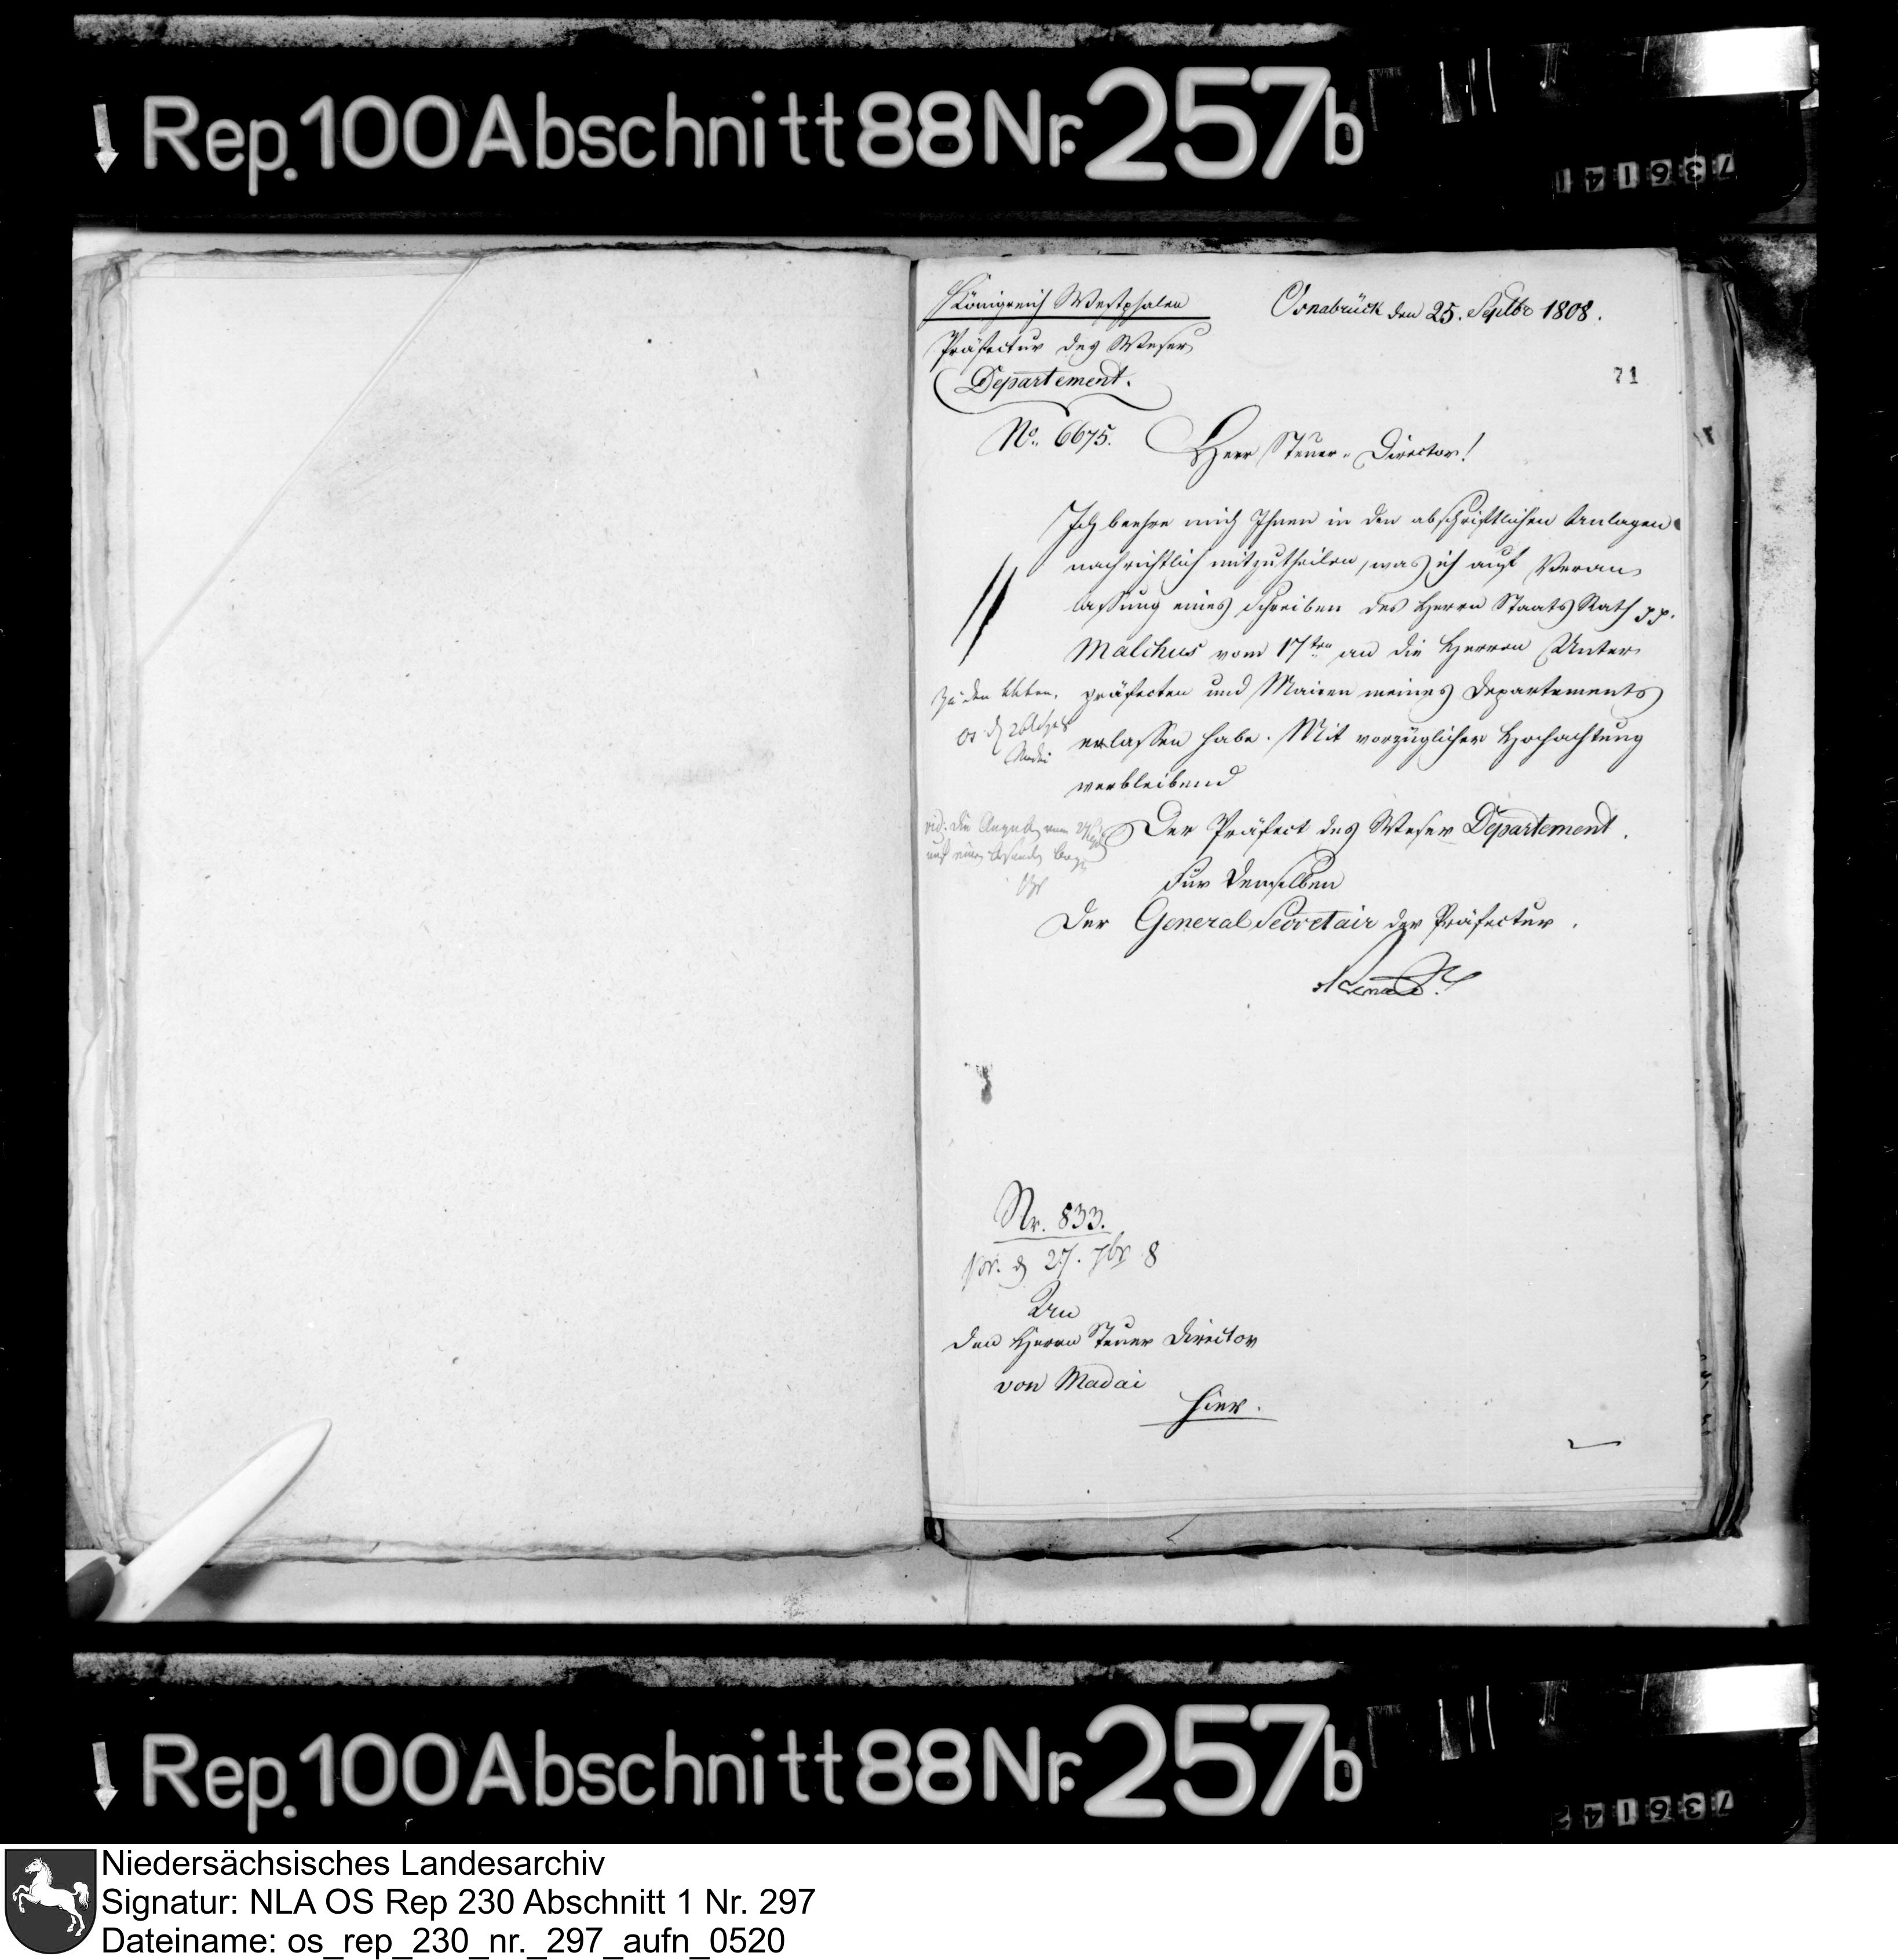 Rep. 100 Abschnitt 88 Nr. 257b
Königreich Westphalen
Osnabrück den 25. Septbr 1808.
Präfectur des Weser
Departement.
71
No. 6675.
Herr Steuer-Director!
Ich beehre mich Ihnen in den abschriftlichen Anlagen
nachrichtlich mitzutheilen, was ich auf Veran-
lassung eines Schreiben des Herrn Staats Rath pp.
Malchus vom 17ten an die Herren Unter-
präfecten und Mairen meines Departements
erlassen habe. Mit vorzüglicher Hochachtung
verbleibend
Zu den Akten.
Madai
Der Präfect des Weser Departement.
Für Denselben
Der General Secretair der Präfectur.
Nr. 833.
pr. d 27. 7br 8
An
den Herrn Steuer Director
von Madai
hier.
Rep. 100 Abschnitt 88 Nr. 257b
Niedersächsisches Landesarchiv
Signatur: NLA OS Rep 230 Abschnitt 1 Nr. 297
Dateiname: os_rep_230_nr._297_aufn_0520